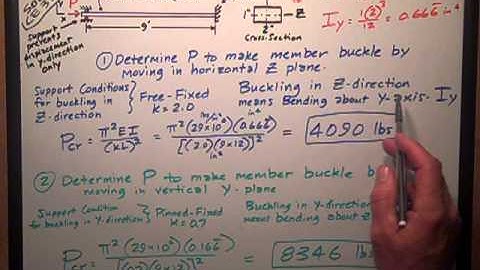 Support
prevents
displacement
in Y-direction
only
P
9'
1"
Z
2"
Cross-Section
I y = 1(2)³/12 = 0.666 in⁴
① Determine P to make member buckle by
moving in horizontal Z plane.
Support Conditions
for buckling in
Z-direction
Free-Fixed
k = 2.0
Buckling in Z-direction
means Bending about Y-axis. Iy
Pcr = π² EI / (kL)² = π² (29×10⁶)(0.666) / [(2.0)(9×12)]² = 4090 lbs
② Determine P to make member buckle
moving in vertical Y-plane
Support Condition
for buckling in Y-direction
Pinned-Fixed
k = 0.7
Buckling in Y-direction
means bending about Z
Pcr = π² (29×10⁶)(0.166) = 8346 lbs